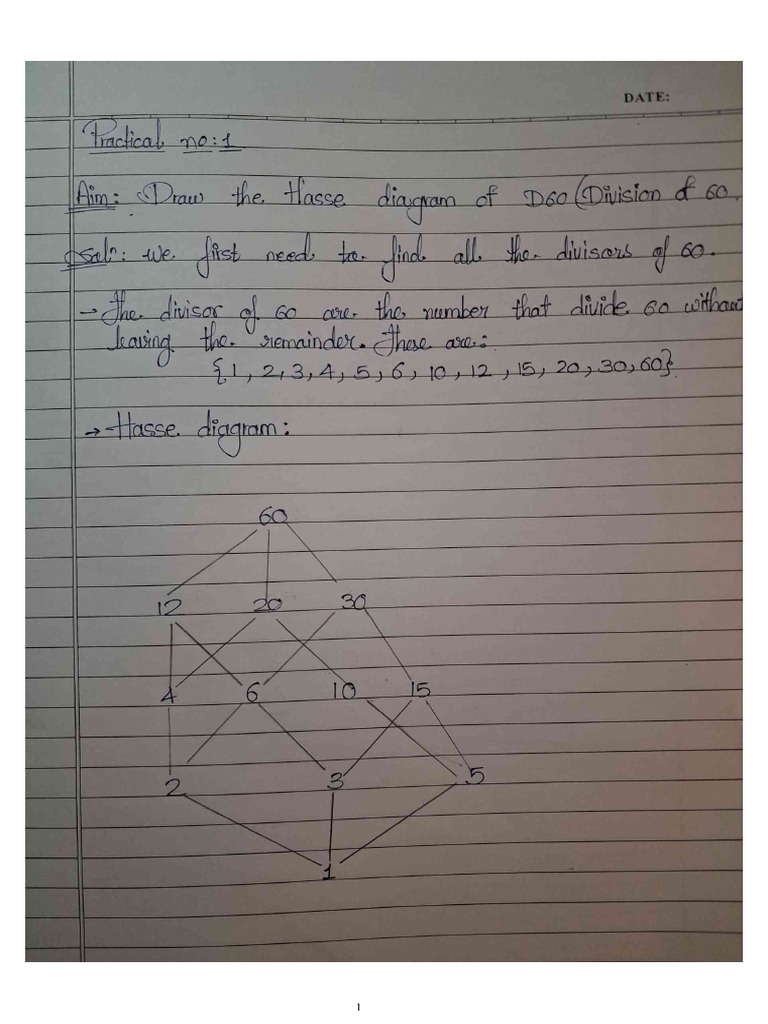 DATE:
Practical no:1
Aim: Draw the Hasse diagram of D60 (Division of 60.
Soln: we first need to find all the divisors of 60.
→ The divisor of 60 are the number that divide 60 without
leaving the remainder. These are:
{1, 2, 3, 4, 5, 6, 10, 12, 15, 20, 30, 60}
→ Hasse diagram:
60
12 20 30
4 6 10 15
2 3 5
1
1